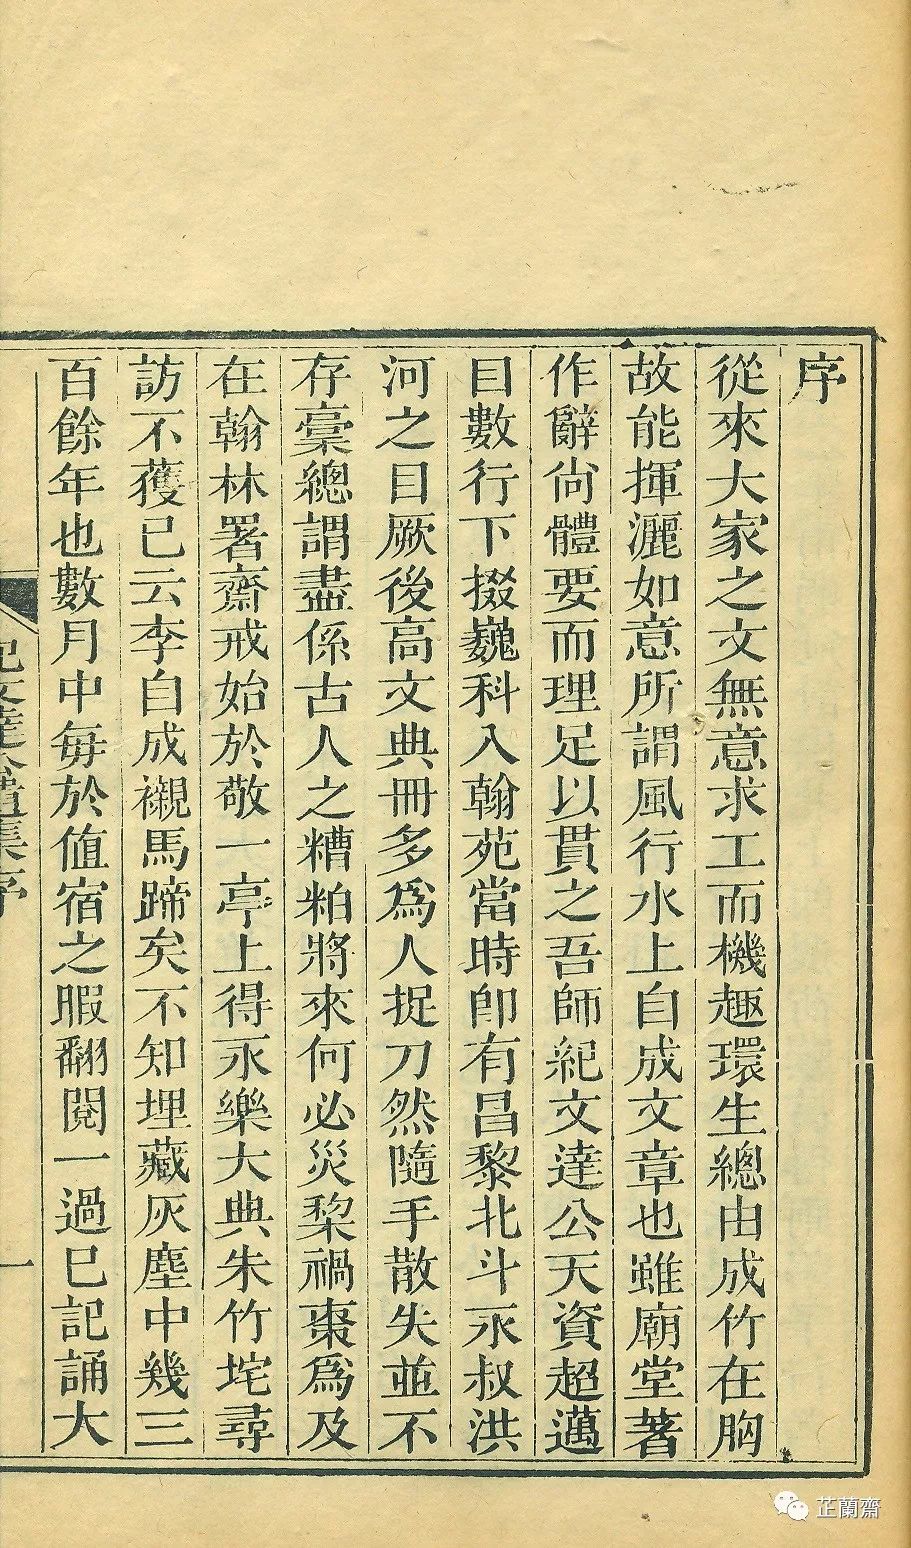 序
從來大家之文無意求工而機趣環生總由成竹在胸
故能揮灑如意所謂風行水上自成文章也雖廟堂著
作辭尙體要而理足以貫之吾師紀文達公天資超邁
目數行下掇巍科入翰苑當時卽有昌黎北斗永叔洪
河之目厥後高文典冊多爲人捉刀然隨手散失並不
存稾總謂盡係古人之糟粕將來何必災棃禍棗爲及
在翰林署齋戒始於敬一亭上得永樂大典朱竹垞尋
訪不獲已云李自成襯馬蹄矣不知埋藏灰塵中幾三
百餘年也數月中每於值宿之暇翻閱一過已記誦大
紀文達公遺集序
一
芷蘭齋